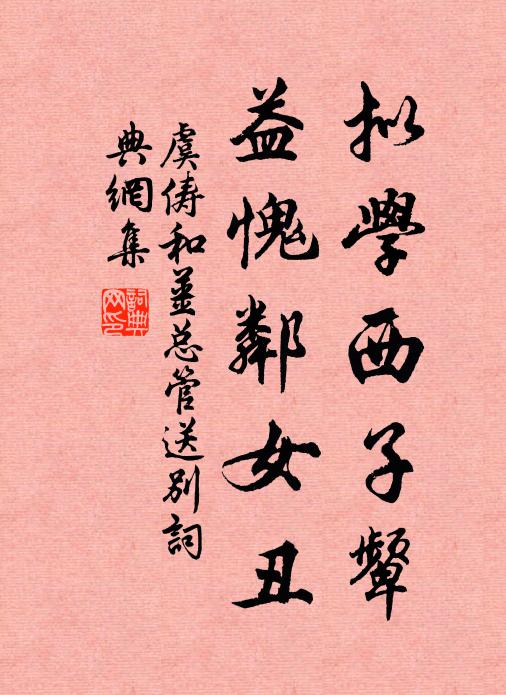 拟學西子顰
益愧鄰女丑
虞俦和姜总管送别詞
典網集
詞典
网印